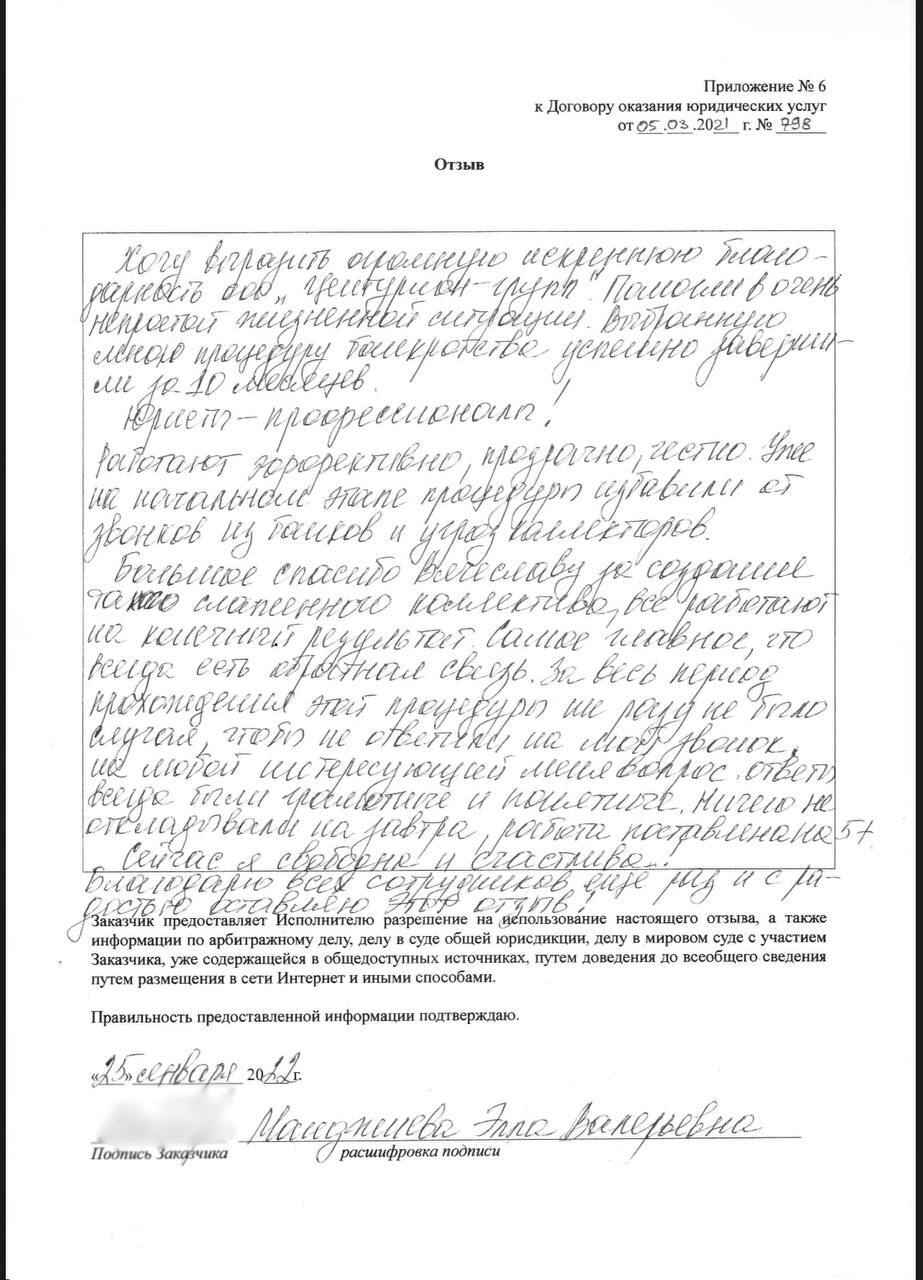 Приложение № 6
к Договору оказания юридических услуг
от 05.03.2021 г. № 798
Отзыв
Хочу выразить огромную искреннюю благо-
дарность ооо „Центурион-групп". Помогли в очень
непростой жизненной ситуации. Выбранную
мною процедуру банкротства успешно заверши-
ли за 10 месяцев.
Юристы – профессионалы!
Работают эффективно, прозрачно, честно. Уже
на начальном этапе процедуры избавили от
звонков из банков и угроз коллекторов.
Большое спасибо Вячеславу за создание
такого слаженного коллектива, все работают
на конечный результат. Самое главное, что
всегда есть обратная связь. За весь период
прохождения этой процедуры ни разу не было
случая, чтобы не ответили на мой звонок,
на любой интересующий меня вопрос. ответы
всегда были грамотные и понятные. Ничего не
откладывали на завтра, работа поставлена на 5+
Сейчас я свободна и счастлива..!
Благодарю всех сотрудников еще раз и с ра-
достью оставляю этот отзыв!
Заказчик предоставляет Исполнителю разрешение на использование настоящего отзыва, а также
информации по арбитражному делу, делу в суде общей юрисдикции, делу в мировом суде с участием
Заказчика, уже содержащейся в общедоступных источниках, путем доведения до всеобщего сведения
путем размещения в сети Интернет и иными способами.
Правильность предоставленной информации подтверждаю.
«25» января 2022г.
Манджиева Элла Валерьевна
Подпись Заказчика расшифровка подписи